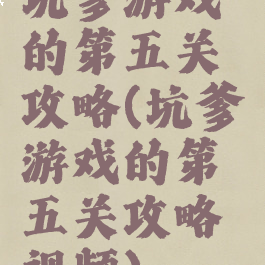 坑爹游戏
的第五关
攻略(坑爹
游戏的第
五关攻略
视频)